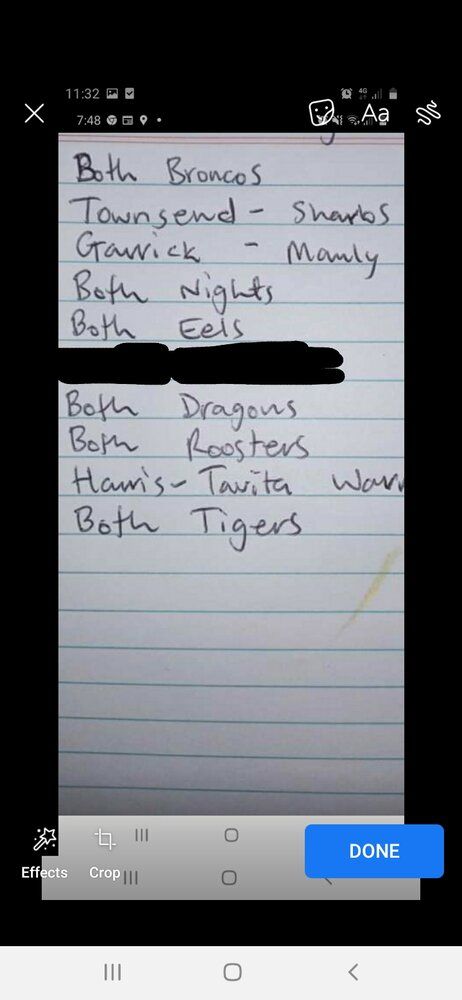 11:32
4G
Aa
7:48
Both Broncos
Townsend - Sharbs
Garrick - Manly
Both Nights
Both Eels
Both Dragons
Both Roosters
Harris - Tavita Warr
Both Tigers
DONE
Effects
Crop